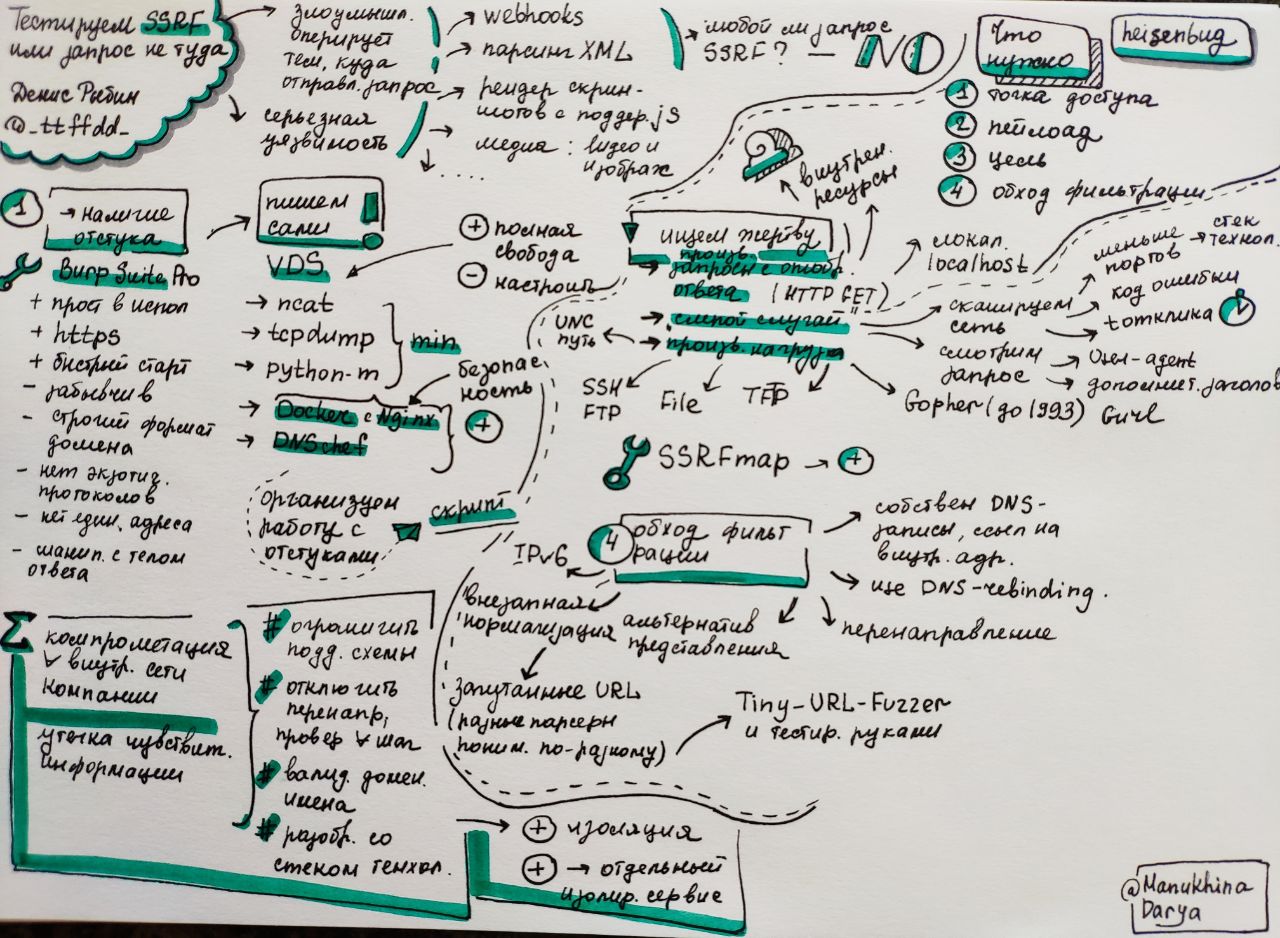 Тестируем SSRF
или запрос не туда
Денис Рыбин
@_ttffdd_
злоумышл.
оперирует
тем, куда
отправл. запрос
серьезная
уязвимость
→ webhooks
→ парсинг XML
→ рендер скрин-
шотов с поддер. js
→ медиа : видео и
изображ
.....
→ любой ли запрос
SSRF? — NO
Что
нужно
heisenbug
1 точка доступа
2 пейлоад
3 цель
4 обход фильтрации
1
→ наличие
отстука
Burp Suite Pro
+ прост в испол
+ https
+ быстрый старт
- забывчив
- строгий формат
домена
- нет экзотич.
протоколов
- нет един. адреса
- манип. с телом
ответа
пишем
сами !
VDS
+ полная
свобода
- настроить
→ ncat
→ tcpdump
→ python -m
min
безопас
ность
+
→ Docker с Nginx
→ DNSchef
Организуем
работу с
отстуками
скрипт
внутрен.
ресурсы
ищем жертву
→ произв.
запросы с отобр.
ответа (HTTP GET)
→ "слепой случай"
→ произв. нагрузка
локал.
localhost
сканируем
сеть
меньше
портов
→ стек
технол.
код ошибки
t отклика
смотрим
запрос
→ User-agent
→ дополнит. заголов
UNC
путь
SSH
FTP
File
TFTP
Gopher (до 1993) Curl
SSRFmap → +
4
обход фильт
рации
IPv6
собствен DNS-
записи, ссыл на
внутр. адр.
→ ище DNS-rebinding.
перенаправление
альтернатив
представления
внезапная
нормализация
Запутанные URL
(разные парсеры
поним. по-разному)
Tiny-URL-Fuzzer
и тестир. руками
Σ
компрометация
∀ внутр. сети
компании
утечка чувствит.
информации
# ограничить
подд. схемы
# отключить
перенапр,
провер ∀ шаг
# валид. домен.
имена
# разобр. со
стеком технол.
+ изоляция
+ → отдельный
изолир. сервис
@Manukhina
Darya